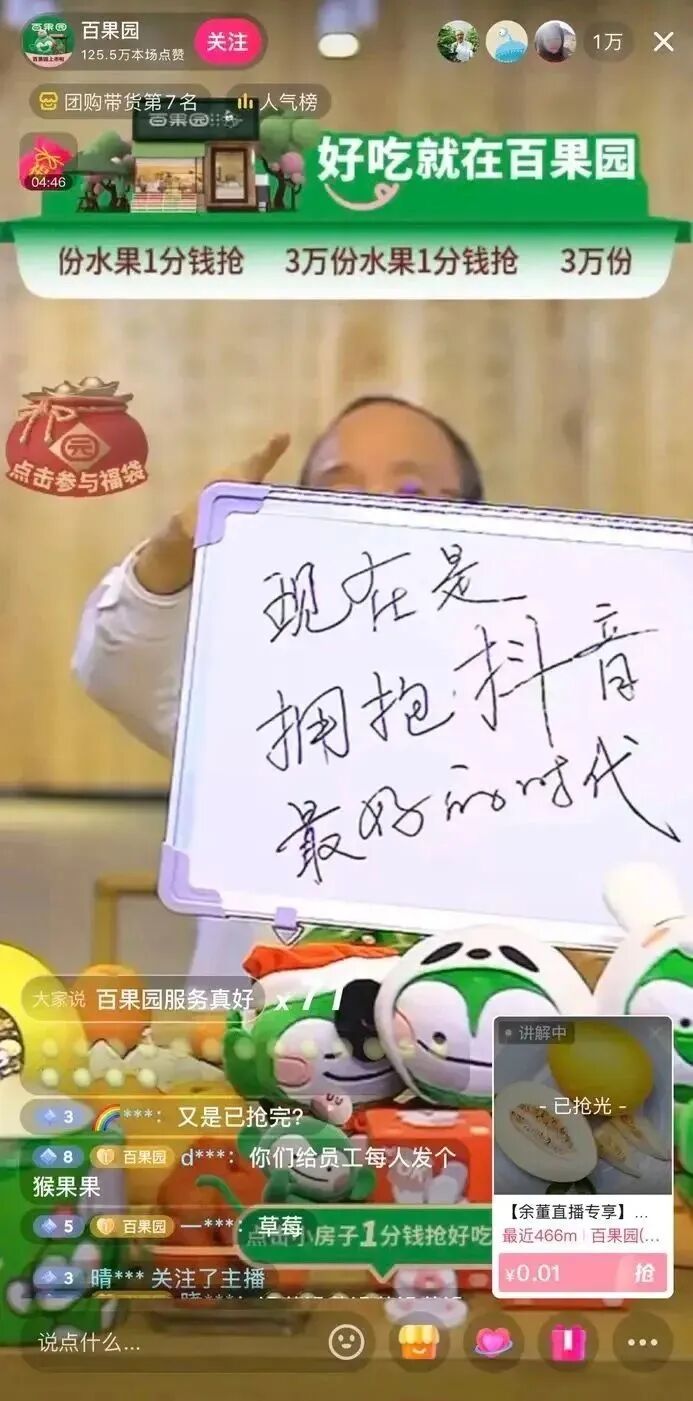 百果园
125.5万本场点赞
关注
1万
团购带货第7名
人气榜
百果园
04:46
好吃就在百果园
份水果1分钱抢 3万份水果1分钱抢 3万份
点击参与福袋
现在是
拥抱抖音
最好的时代
大家说 百果园服务真好 x 71
讲解中
- 已抢光 -
3 🌈***: 又是已抢完?
8 百果园 d***: 你们给员工每人发个
猴果果
5 百果园 一***: 草莓
点击小房子1分钱抢好吃
3 晴*** 关注了主播
【余董直播专享】...
最近466m 百果园(...
¥0.01 抢
说点什么...